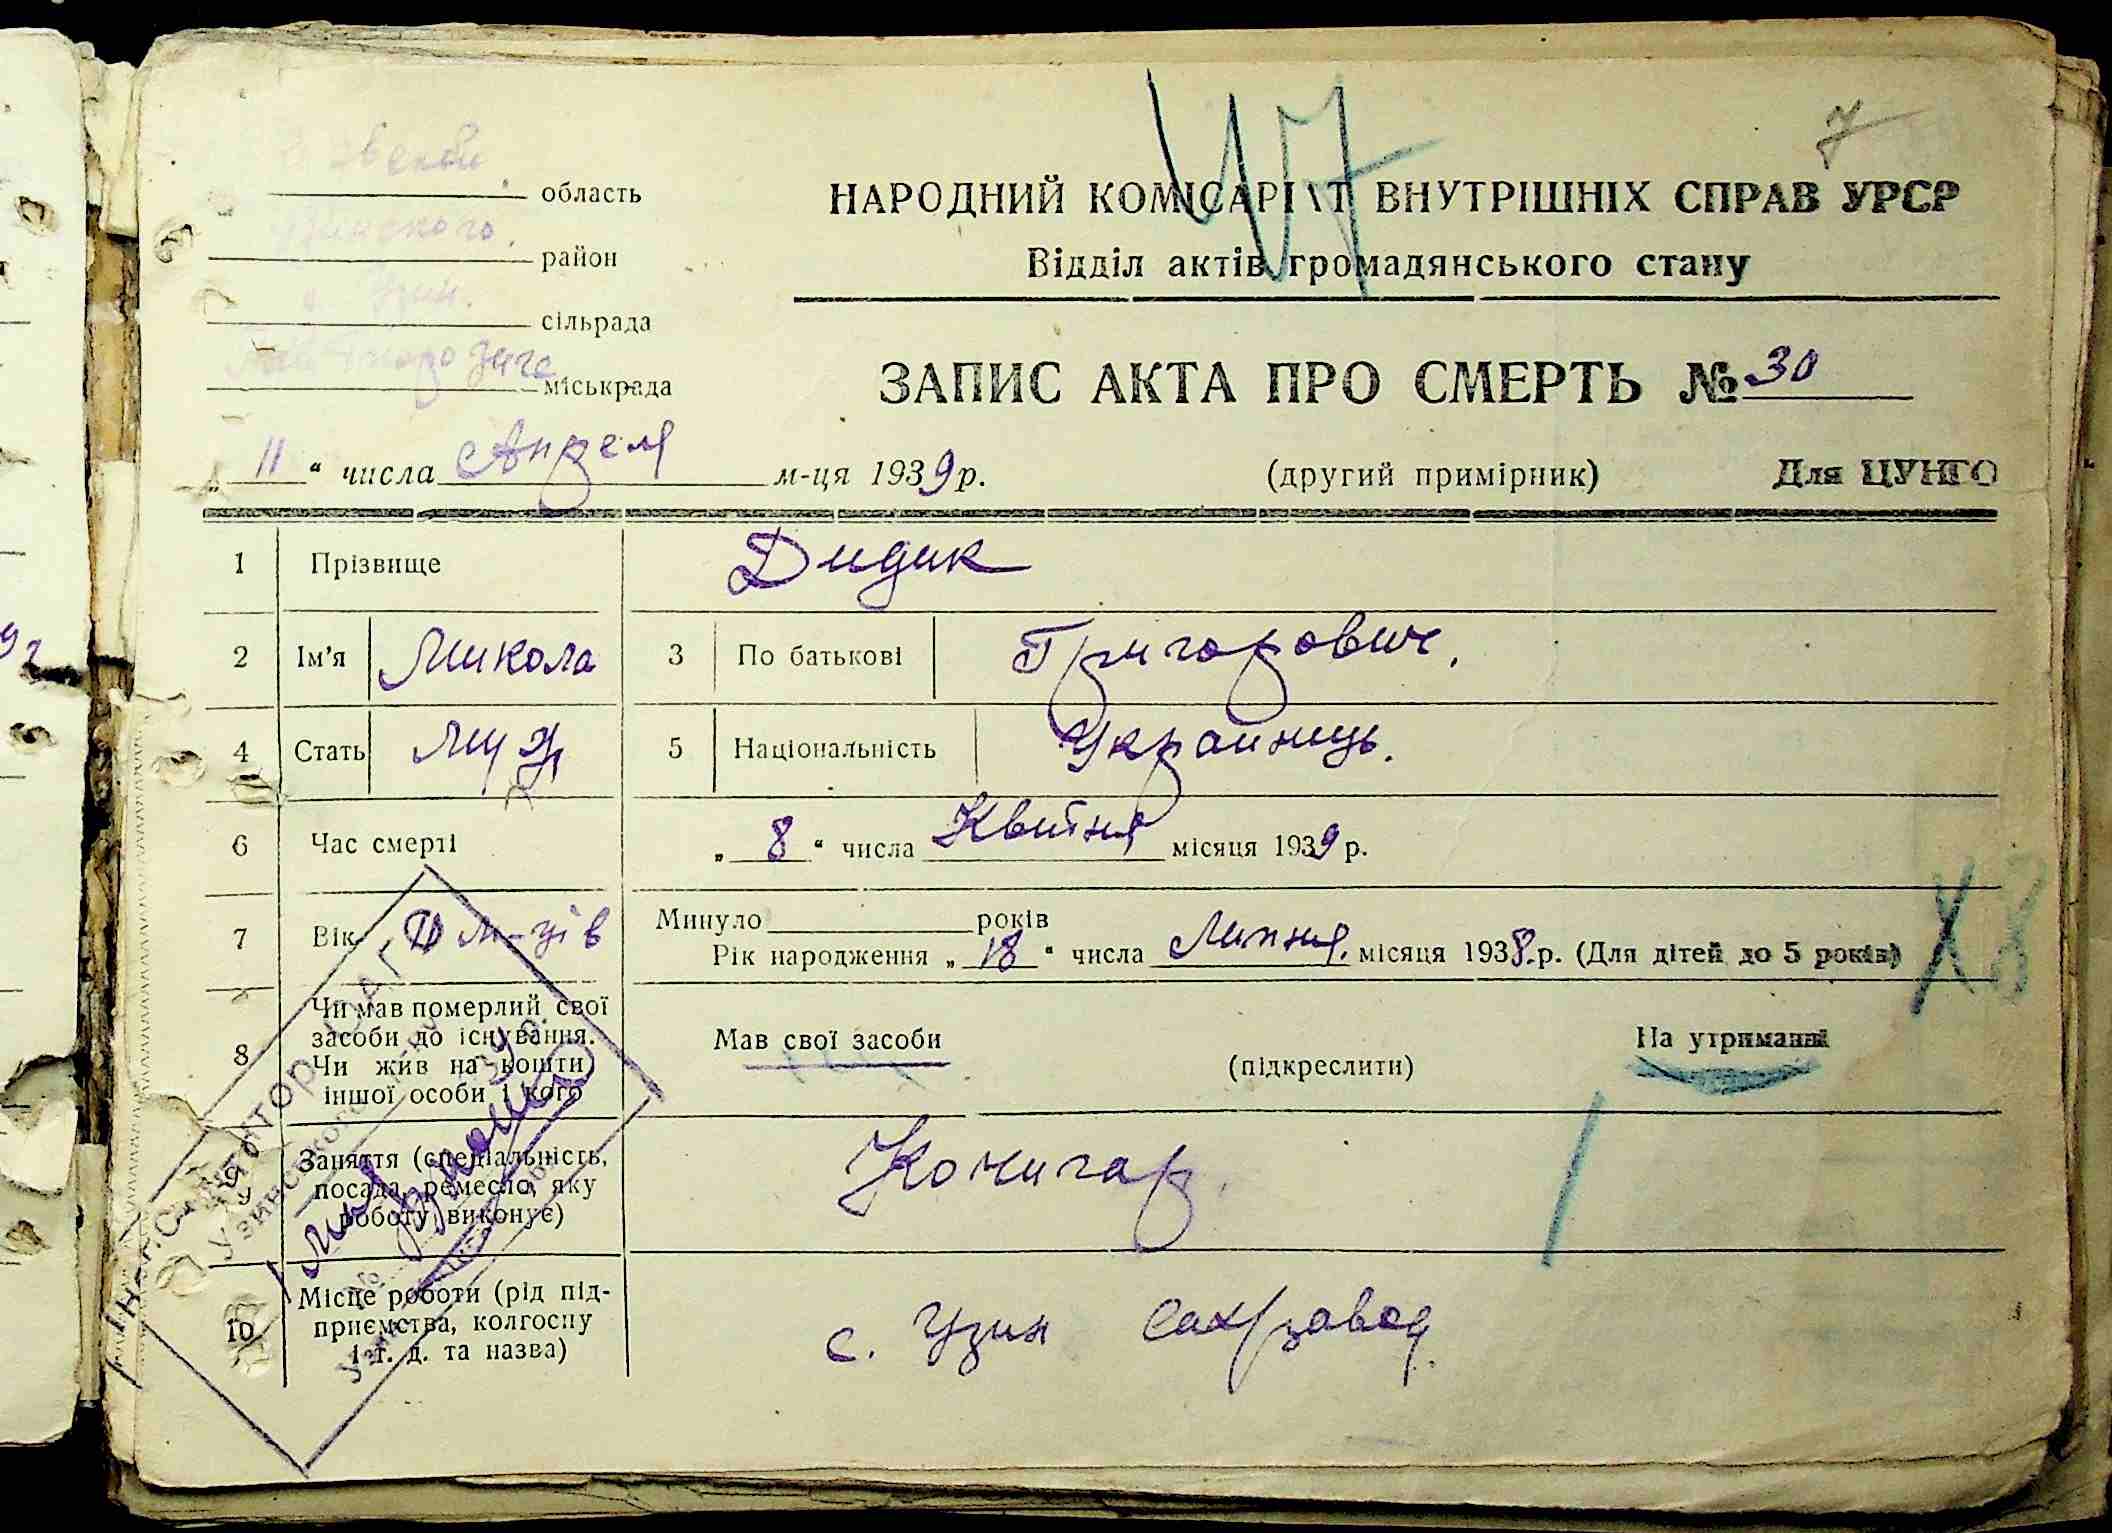 7
область
Узинського.
район
с. Узин.
сільрада
міськрада
НАРОДНИЙ КОМІСАРІАТ ВНУТРІШНІХ СПРАВ УРСР
Відділ актів громадянського стану
ЗАПИС АКТА ПРО СМЕРТЬ № 30
„ 11 “ числа Апреля м-ця 1939 р. (другий примірник) Для ЦУНГО
1 Прізвище Дидик
2 Ім'я Микола 3 По батькові Григорович.
4 Стать Муж 5 Національність Украинець.
6 Час смерті „ 8 “ числа Квитня місяця 1939 р.
7 Вік м-ців Минуло років
Рік народження „ 18 “ числа Липня. місяця 1938.р. (Для дітей до 5 років)
8 Чи мав померлий свої засоби до існування. Чи жив на кошти іншої особи і кого Мав свої засоби (підкреслити) На утриманні
9 Заняття (спеціальність, посада, ремесло, яку роботу виконує) Кочигар.
10 Місце роботи (рід підприємства, колгоспу і т. д. та назва) с. Узин Сахзавод.